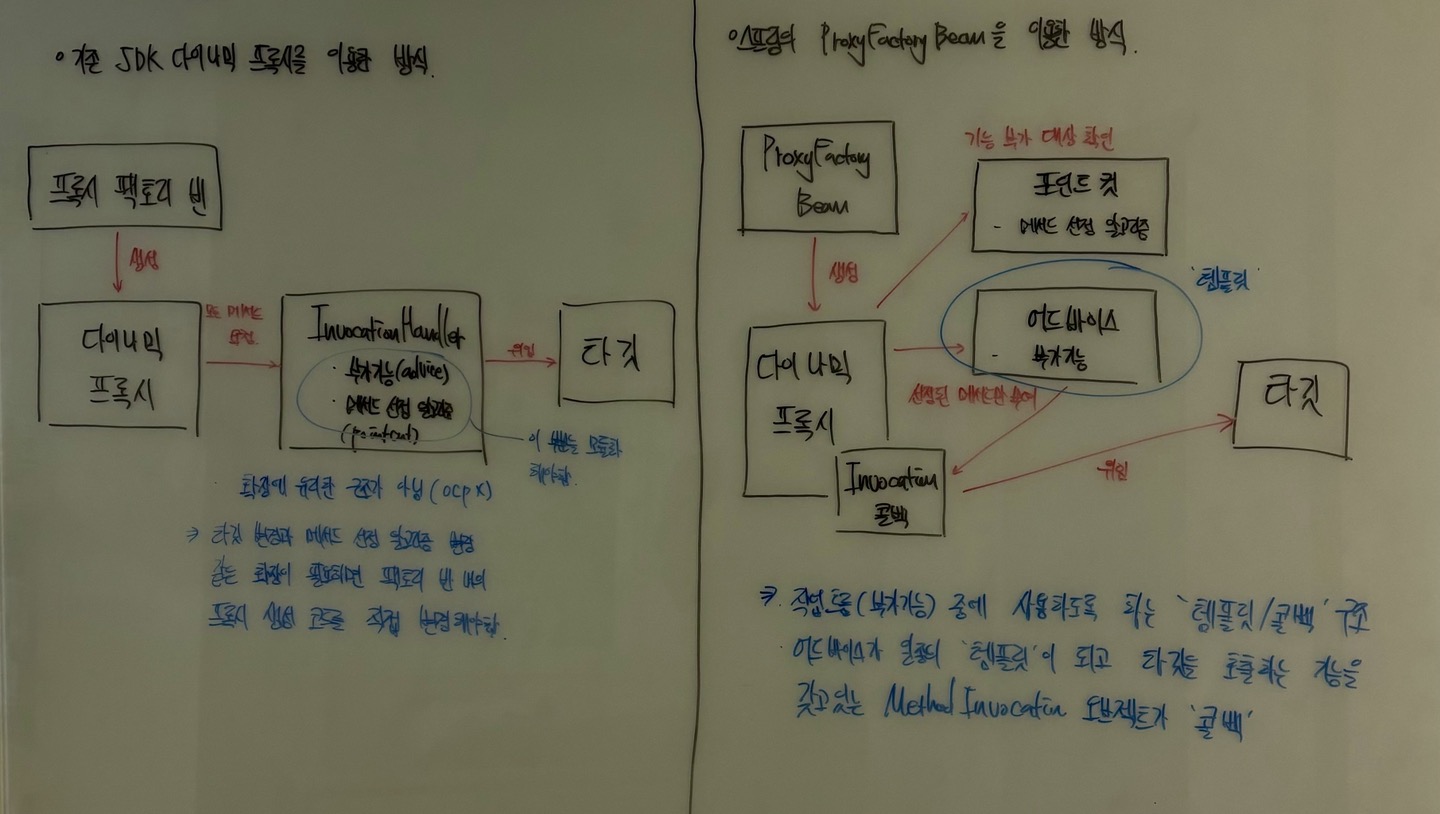 • 기존 JDK 다이나믹 프록시를 이용한 방식.
프록시 팩토리 빈
생성
다이나믹
프록시
모든 메서드
요청
InvocationHandler
· 부가기능(advice)
· 메서드 선정 알고리즘
(pointcut)
위임
타깃
이 부분을 모듈화
해야함.
확장에 유리한 구조가 아님(OCP X)
=> 타깃 변경과 메서드 선정 알고리즘 변경
같은 확장이 필요하면 팩토리 빈 내의
프록시 생성 코드를 직접 변경해야함.
• 스프링의 ProxyFactoryBean을 이용한 방식.
ProxyFactory
Bean
생성
기능 부가 대상 확인
포인트 컷
- 메서드 선정 알고리즘
'템플릿'
어드바이스
- 부가기능
다이나믹
프록시
선정된 메서드만 부여
Invocation
콜백
위임
타깃
=> 작업흐름(부가기능) 중에 사용하도록 하는 '템플릿/콜백' 구조
· 어드바이스가 일종의 '템플릿'이 되고 타깃을 호출하는 기능을
갖고있는 MethodInvocation 오브젝트가 '콜백'